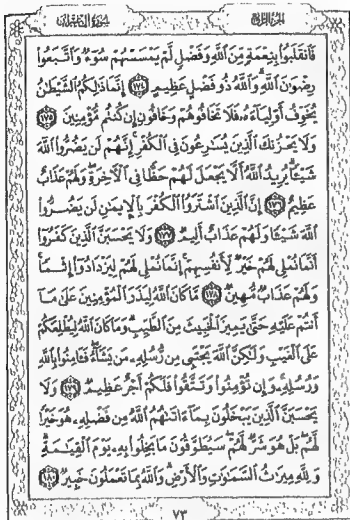 سورة آل عمران الجزء الرابع
فَٱنقَلَبُوا۟ بِنِعْمَةٍ مِّنَ ٱللَّهِ وَفَضْلٍ لَّمْ يَمْسَسْهُمْ سُوٓءٌ وَٱتَّبَعُوا۟
رِضْوَٰنَ ٱللَّهِ وَٱللَّهُ ذُو فَضْلٍ عَظِيمٍ ١٧٤ إِنَّمَا ذَٰلِكُمُ ٱلشَّيْطَٰنُ
يُخَوِّفُ أَوْلِيَآءَهُۥ فَلَا تَخَافُوهُمْ وَخَافُونِ إِن كُنتُم مُّؤْمِنِينَ ١٧٥
وَلَا يَحْزُنكَ ٱلَّذِينَ يُسَٰرِعُونَ فِى ٱلْكُفْرِ إِنَّهُمْ لَن يَضُرُّوا۟ ٱللَّهَ
شَيْـًٔا يُرِيدُ ٱللَّهُ أَلَّا يَجْعَلَ لَهُمْ حَظًّا فِى ٱلْـَٔاخِرَةِ وَلَهُمْ عَذَابٌ
عَظِيمٌ ١٧٦ إِنَّ ٱلَّذِينَ ٱشْتَرَوُا۟ ٱلْكُفْرَ بِٱلْإِيمَٰنِ لَن يَضُرُّوا۟
ٱللَّهَ شَيْـًٔا وَلَهُمْ عَذَابٌ أَلِيمٌ ١٧٧ وَلَا يَحْسَبَنَّ ٱلَّذِينَ كَفَرُوٓا۟
أَنَّمَا نُمْلِى لَهُمْ خَيْرٌ لِّأَنفُسِهِمْ إِنَّمَا نُمْلِى لَهُمْ لِيَزْدَادُوٓا۟ إِثْمًا
وَلَهُمْ عَذَابٌ مُّهِينٌ ١٧٨ مَّا كَانَ ٱللَّهُ لِيَذَرَ ٱلْمُؤْمِنِينَ عَلَىٰ مَآ
أَنتُمْ عَلَيْهِ حَتَّىٰ يَمِيزَ ٱلْخَبِيثَ مِنَ ٱلطَّيِّبِ وَمَا كَانَ ٱللَّهُ لِيُطْلِعَكُمْ
عَلَى ٱلْغَيْبِ وَلَٰكِنَّ ٱللَّهَ يَجْتَبِى مِن رُّسُلِهِۦ مَن يَشَآءُ فَـَٔامِنُوا۟ بِٱللَّهِ
وَرُسُلِهِۦ وَإِن تُؤْمِنُوا۟ وَتَتَّقُوا۟ فَلَكُمْ أَجْرٌ عَظِيمٌ ١٧٩ وَلَا
يَحْسَبَنَّ ٱلَّذِينَ يَبْخَلُونَ بِمَآ ءَاتَىٰهُمُ ٱللَّهُ مِن فَضْلِهِۦ هُوَ خَيْرًا
لَّهُم بَلْ هُوَ شَرٌّ لَّهُمْ سَيُطَوَّقُونَ مَا بَخِلُوا۟ بِهِۦ يَوْمَ ٱلْقِيَٰمَةِ
وَلِلَّهِ مِيرَٰثُ ٱلسَّمَٰوَٰتِ وَٱلْأَرْضِ وَٱللَّهُ بِمَا تَعْمَلُونَ خَبِيرٌ ١٨٠
٧٣